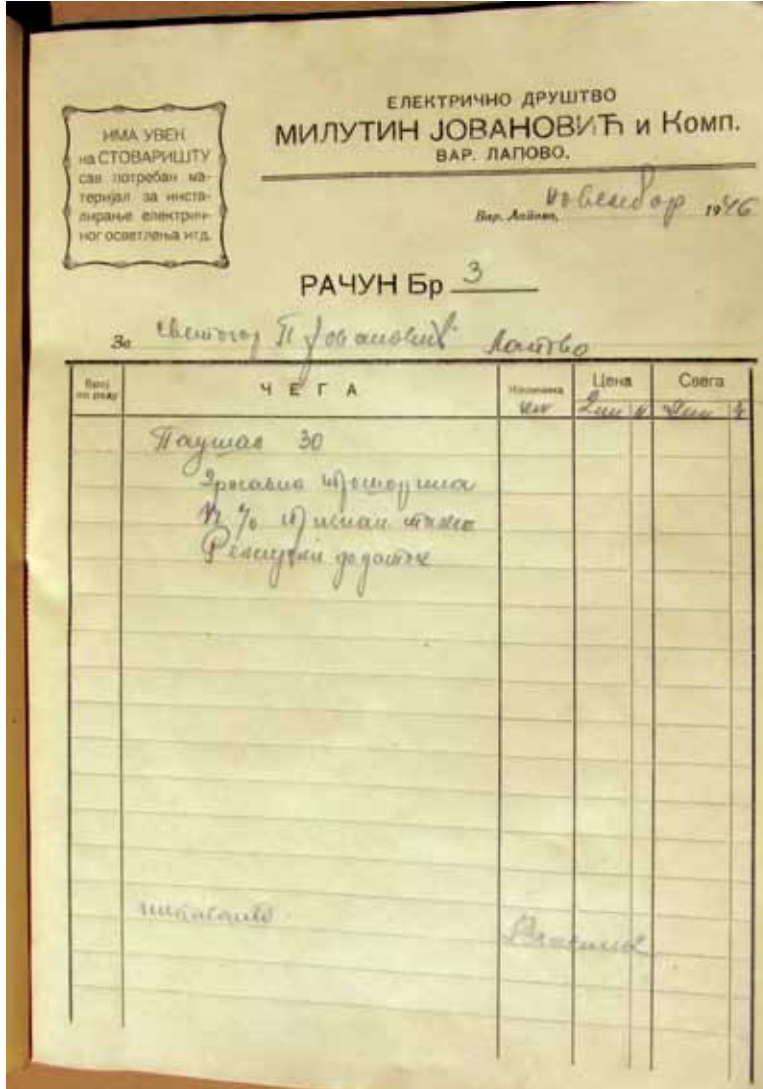 ИМА УВЕК
на СТОВАРИШТУ
сав потребан ма-
теријал за инста-
лирање електрич-
ног осветлења итд.
ЕЛЕКТРИЧНО ДРУШТВО
МИЛУТИН ЈОВАНОВИЋ и Комп.
ВАР. ЛАПОВО.
Вар. Лапово, новембар 1946
РАЧУН Бр 3
За П Јовановић Лапово
Број по реду
ЧЕГА
Количина
Цена
Свега
Дин
Дин
Паушал 30
Државна трошарина
Режијски додатак